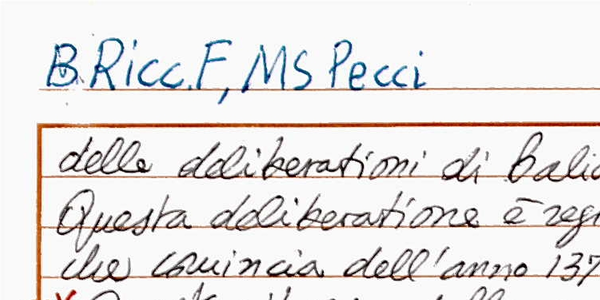 B.Ricc.F, MS Pecci
delle deliberationi di balia
Questa deliberatione è regi
che comincia dell'anno 137